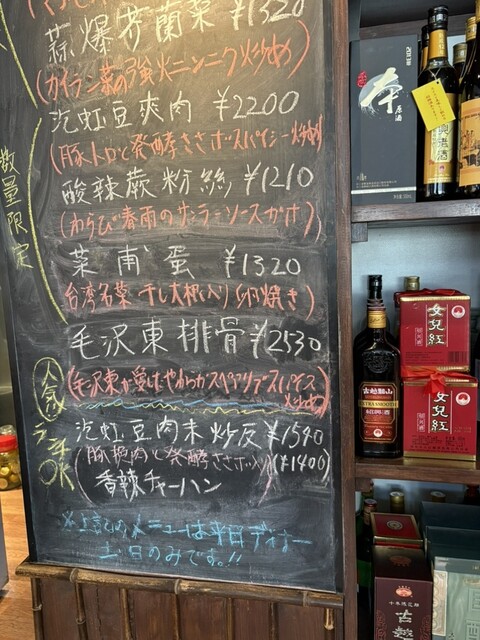 蒜爆芥蘭菜 ¥1320
(カイラン菜の強火ニンニク炒め)
泡豇豆爽肉 ¥2200
(豚トロと発酵ささげのスパイシー炒め)
酸辣蕨粉絲 ¥1210
(わらび春雨のサンラーソースがけ)
菜甫蛋 ¥1320
台湾名菜 干し大根入り卵焼き)
毛沢東排骨 ¥2530
(毛沢東が愛したやわらかスペアリブスパイス炒め)
泡豇豆肉末炒反 ¥1540
(豚挽肉と発酵ささげ) (¥1400)
香辣チャーハン
※上記のメニューは平日ディナー
土日のみです!!
数量限定
人気
ランチOK
本
原酒
女兒紅
女兒紅
古越龍山
EXTRA SMOOTH
紹興酒
古越